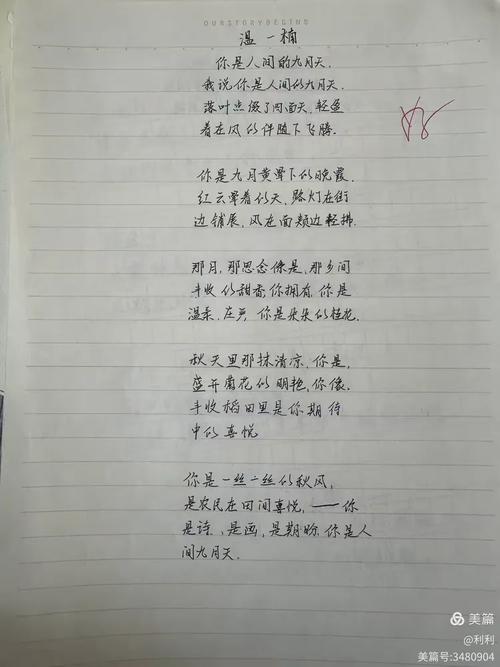 OURSTORYBEGINS
温一楠
你是人间的九月天.
我说你是人间的九月天.
落叶点缀了四面天,轻盈
着在风的伴随下飞腾.
你是九月黄晕下的晚霞.
红云晕着的天,路灯在街
边铺展,风在面颊边轻拂.
那月,那思念像是,那乡间
丰收的甜香,你拥有,你是
温柔,庄严,你是朵朵的桂花.
秋天里那抹清凉,你是,
盛开菊花的明艳,你像.
丰收稻田里是你期待
中的喜悦
你是一丝一丝的秋风,
是农民在田间喜悦,——你
是诗、是画,是期盼,你是人
间九月天.
好
美篇
@利利
美篇号:3480904